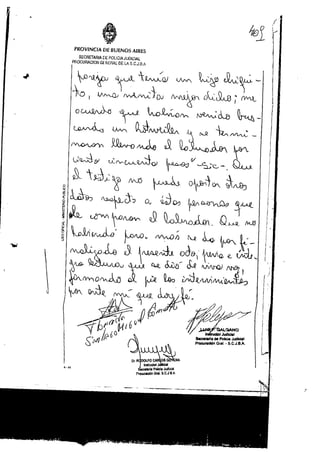 409
PROVINCIA DE BUENOS AIRES
SECRETARIA DE POLICIA JUDICIAL
PROCURACION GENERAL DE LA S.C.J.B.A.
pareja que tenía un hijo chiqui-
to, una nenita mejor dicho; me
acuerdo que habían venido bus-
cando un y se termi-
naron llevando el labrador por
ciento cincuenta pesos" -sic-. Que
el testigo no puede aportar otros
datos respecto a éstas personas que
le compraron el labrador. Que no
habiendo para más se da por fi-
nalizado el presente acto, previa e ínte-
gra lectura que se dio de viva voz,
firmando al pie los intervinientes
por ante mí que doy fe.
USO OFICIAL - MINISTERIO PUBLICO
LUIS GALGANO
Instructor Judicial
Secretaría de Policía Judicial
Procuración Gral. - S.C.J.B.A.
Dr. RODOLFO CARLOS
Instructor Judicial
Secretaría Policía Judicial
Procuración Gral. S.C.J.B.A.